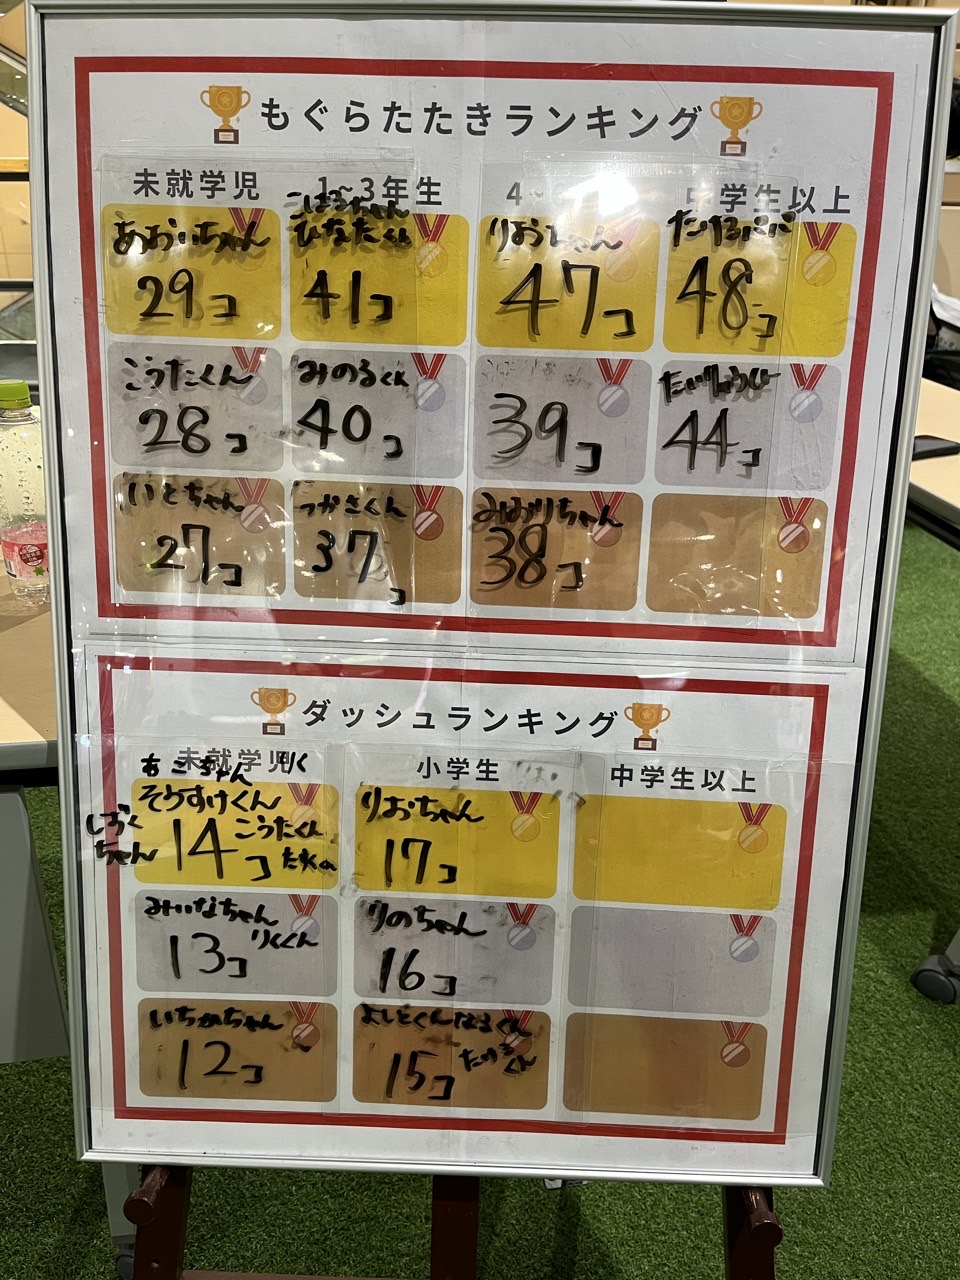 もぐらたたきランキング
未就学児
1~3年生
4~
中学生以上
あおいちゃん
29コ
こはるちゃん
ひなたくん
41コ
りおちゃん
47コ
たけるパパ
48コ
こうたくん
28コ
みのるくん
40コ
39コ
44コ
いとちゃん
27コ
つかさくん
37コ
みおりちゃん
38コ
ダッシュランキング
未就学児
小学生
中学生以上
そうすけくん
しずくちゃん
こうたくん
14コ
りおちゃん
17コ
みいなちゃん
りくくん
13コ
りのちゃん
16コ
いちかちゃん
12コ
よしとくん はるくん
たけるくん
15コ